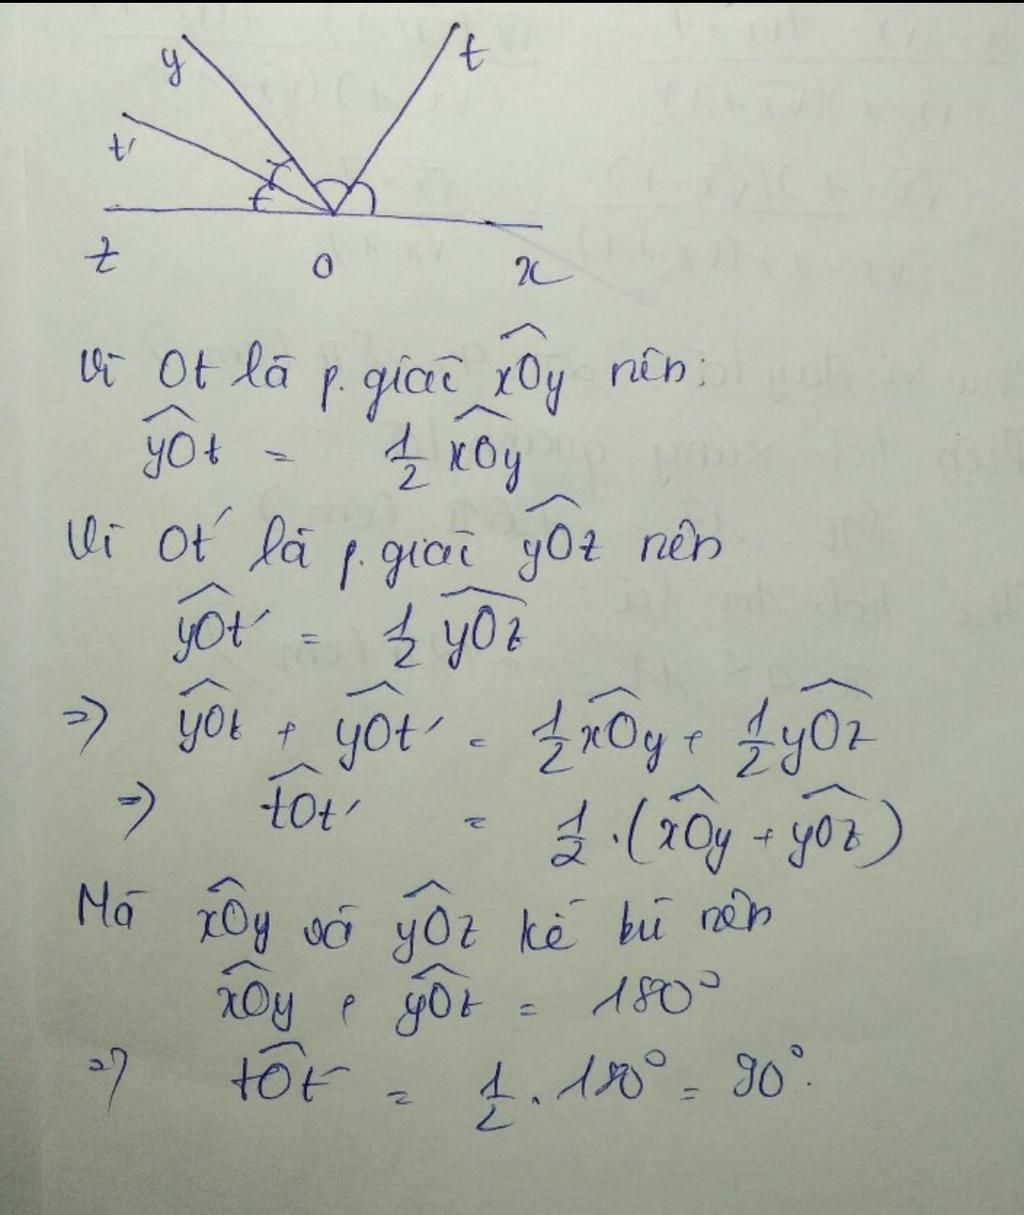 y
t
t'
z
O
x
Vì Ot là p. giác xOy nên:
yOt = 1/2 xOy
Vì Ot' là p. giác yOz nên
yOt' = 1/2 yOz
=> yOt + yOt' = 1/2 xOy + 1/2 yOz
=> tOt' = 1/2 . (xOy + yOz)
Mà xOy và yOz kề bù nên
xOy + yOz = 180°
=> tOt' = 1/2 . 180° = 90°.